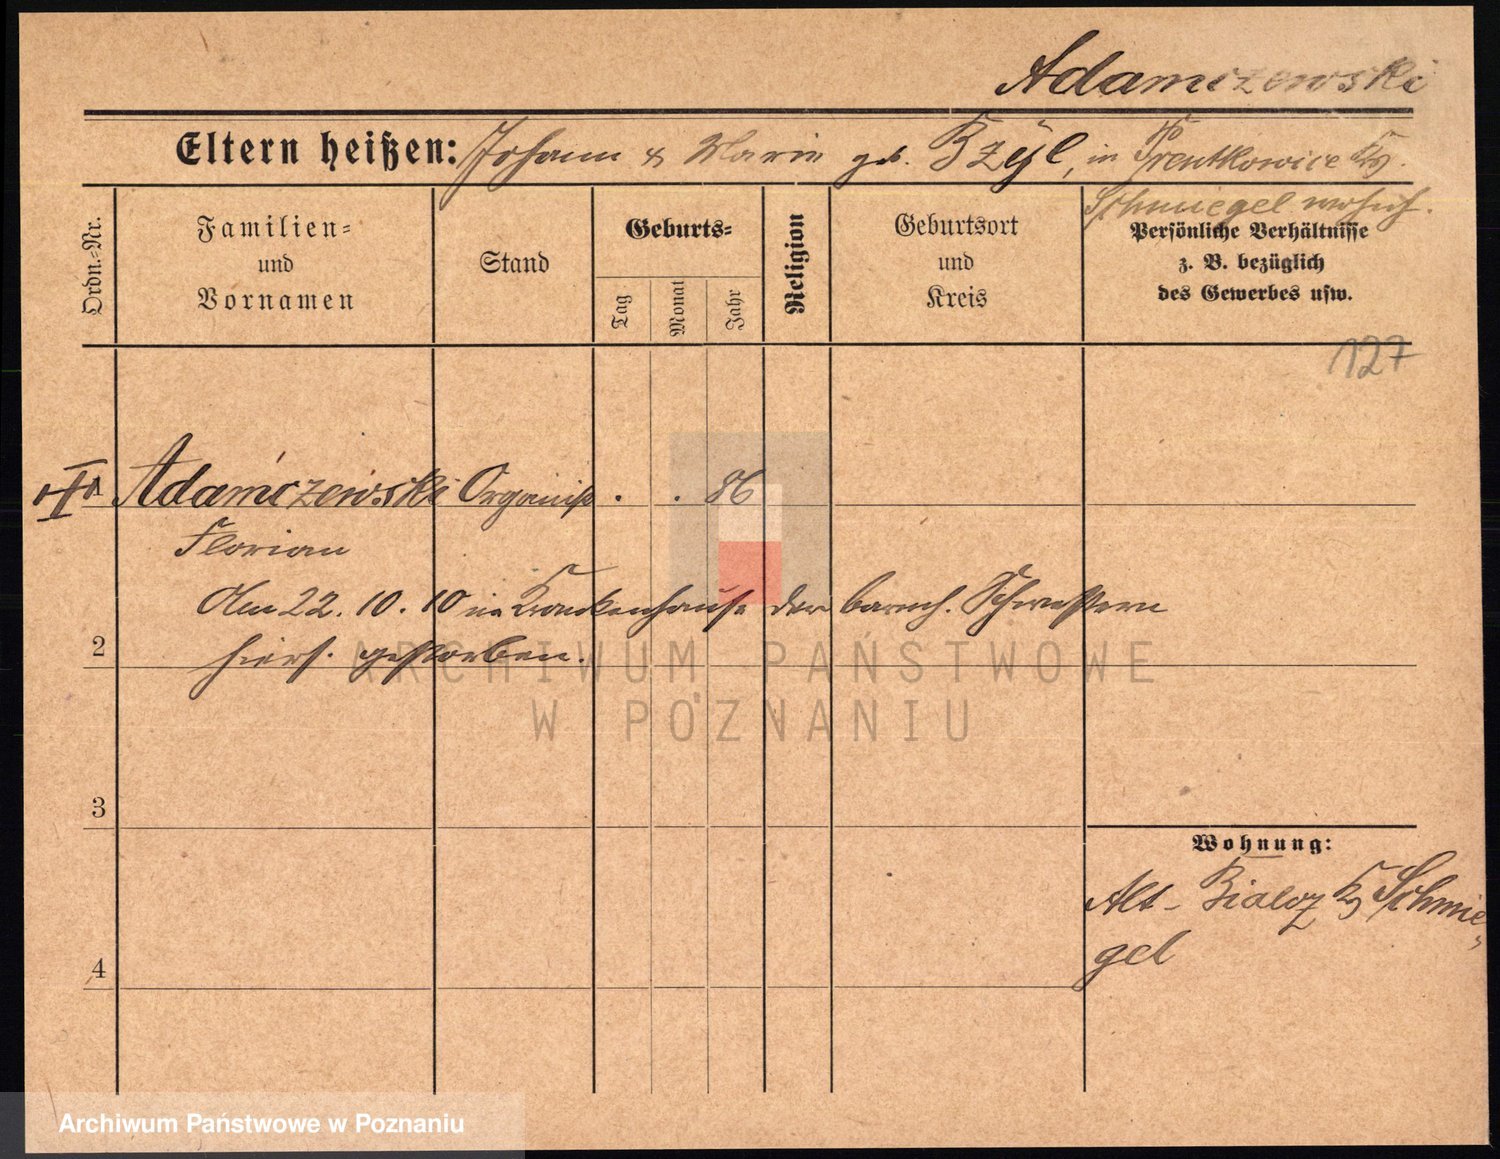 Adamczewski
Eltern heißen: Johann & Marie geb. Bzyl, in Prentkowice Krs.
Schmiegel wohnh.
Ordn.-Nr.
Familien-
und
Vornamen
Stand
Geburts-
Tag
Monat
Jahr
Religion
Geburtsort
und
Kreis
Persönliche Verhältnisse
z. B. bezüglich
des Gewerbes usw.
127
1 Adamczewski Organist . . 86
Florian
Am 22. 10. 10 im Krankenhause der barmh. Schwestern
2
hiers. gestorben.
ARCHIWUM PAŃSTWOWE
W POZNANIU
3
Wohnung:
Alt-Bialcz Krs Schmie-
gel
4
Archiwum Państwowe w Poznaniu